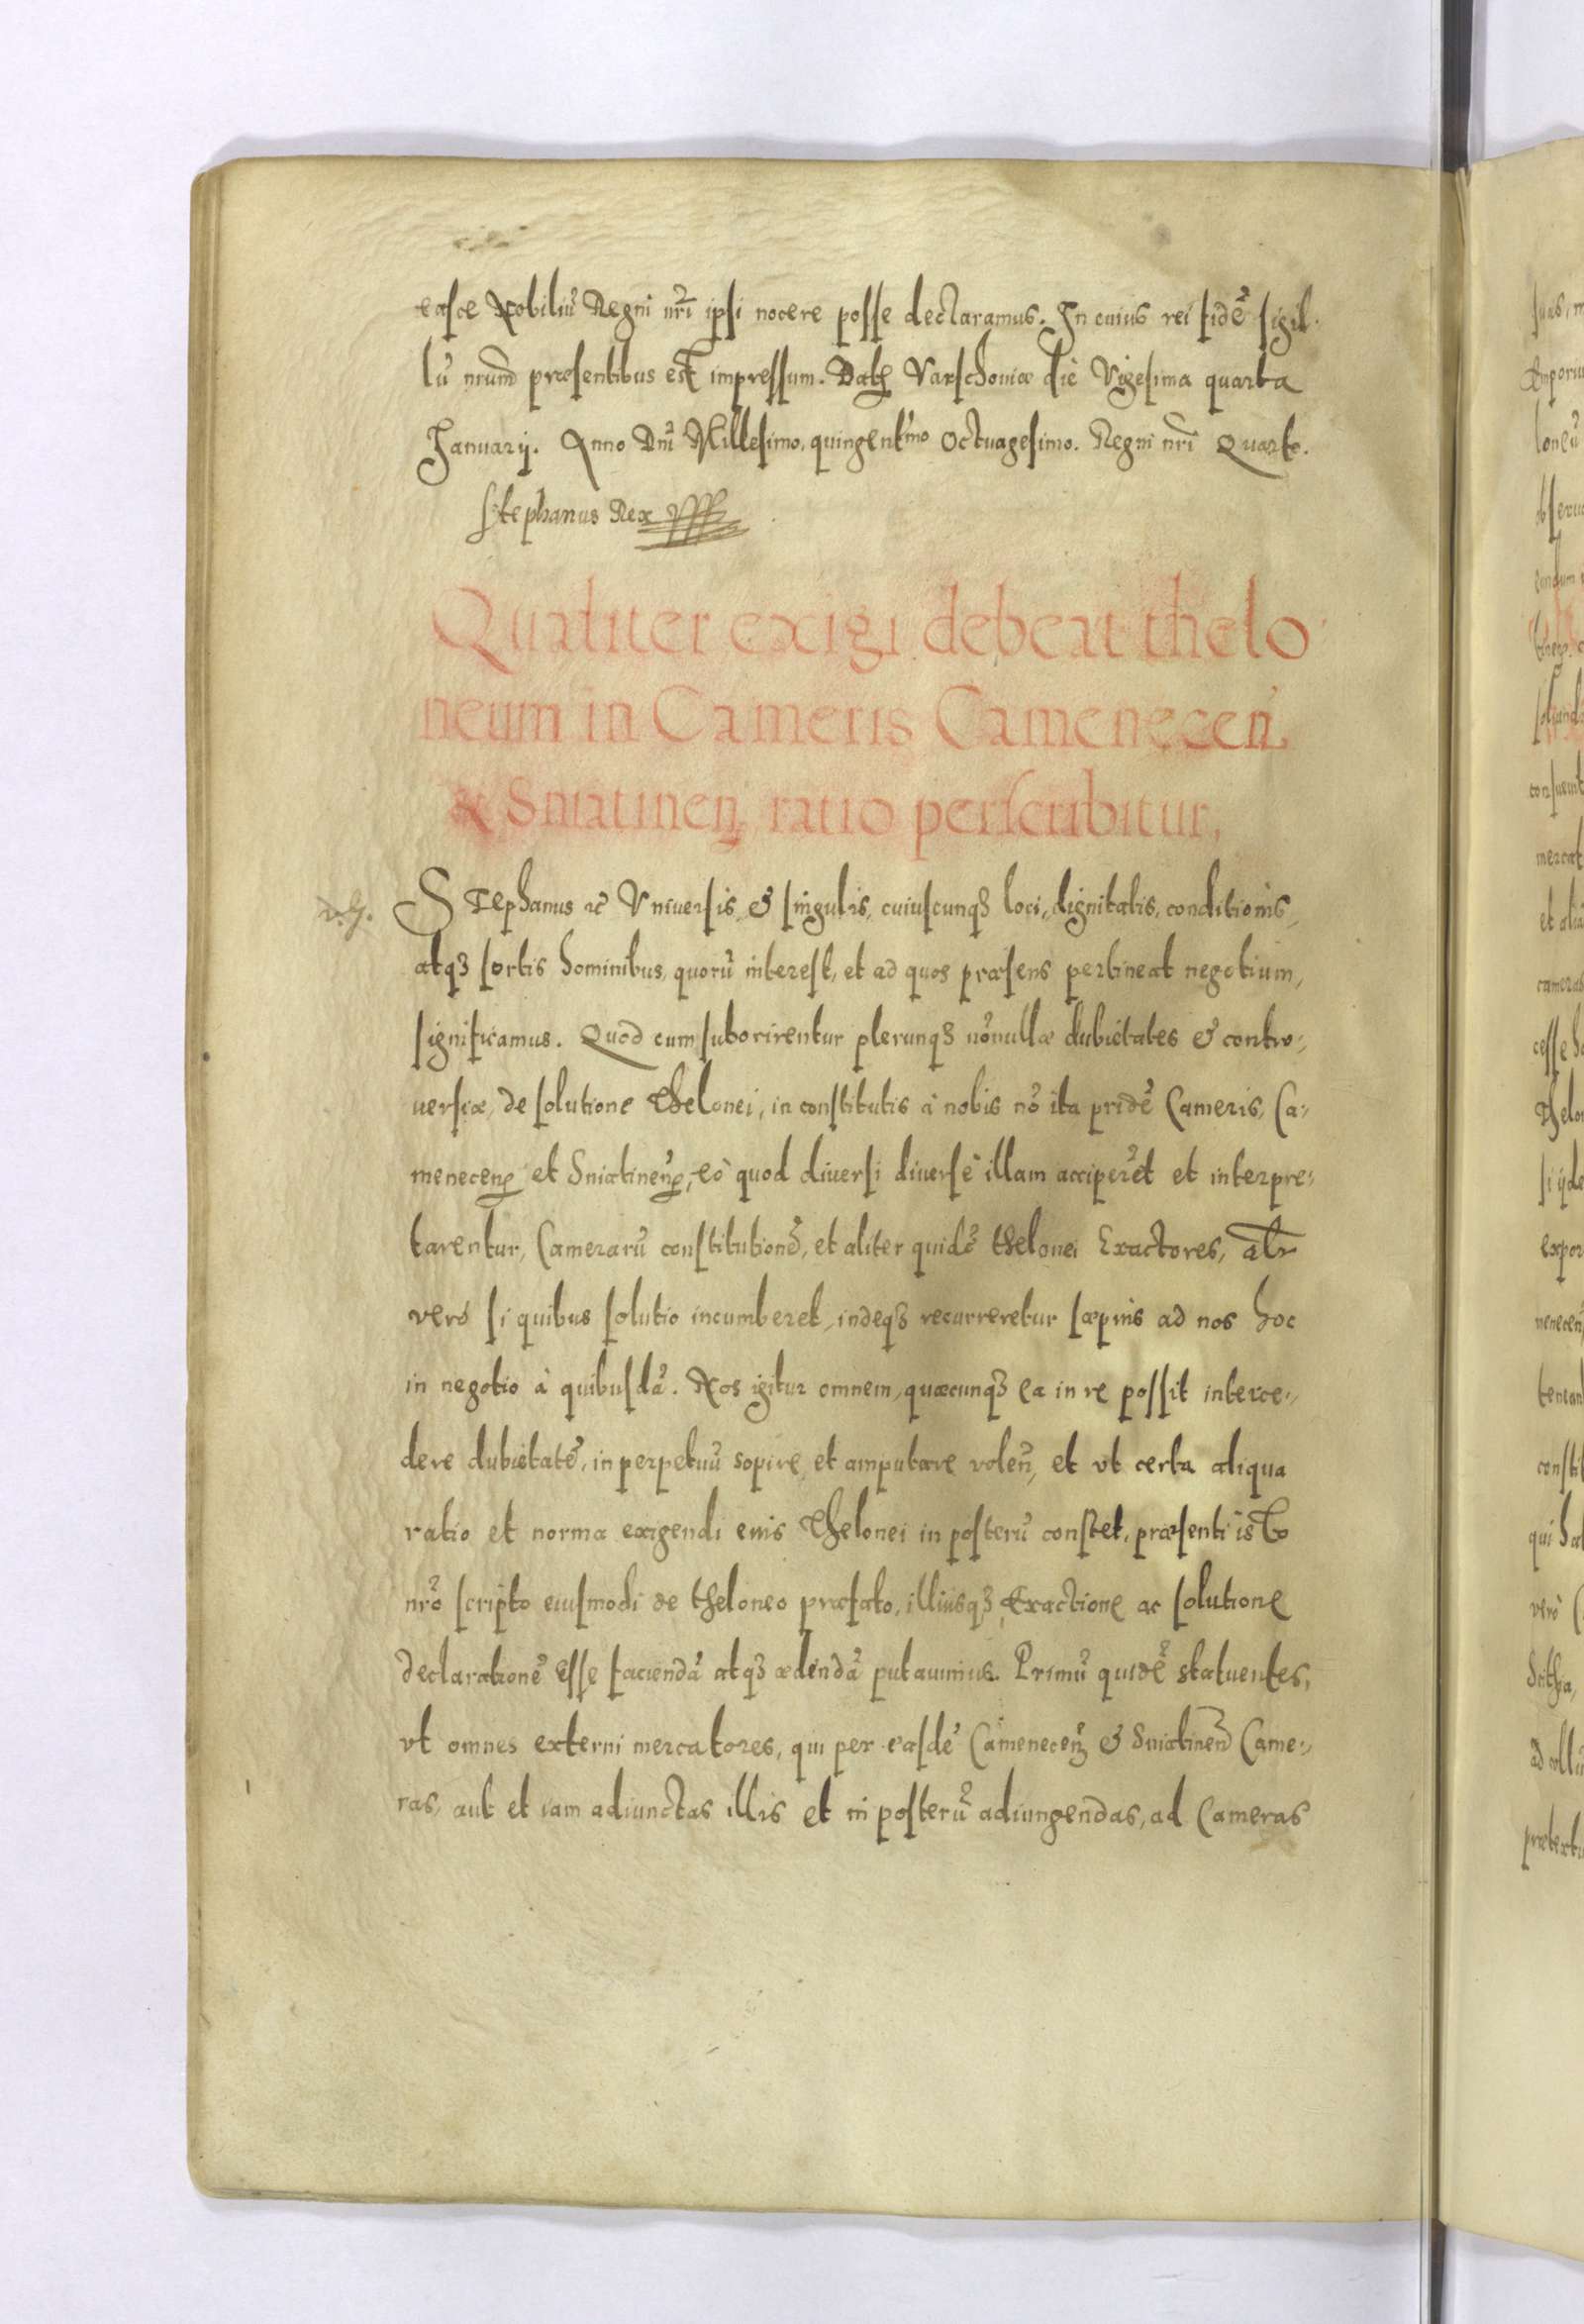 easce Nobiliũ Regni nr̃i ipsi nocere posse declaramus. In cuius rei fidẽ sigil-
lũ nrum̃ præsentibus est impressum. Dat Varschoviæ die Vigesima quarta
Januarij. Anno Dni Millesimo, quingentmo Octuagesimo. Regni nri Quarto.
Stephanus Rex
Qualiter exigi debeat thelo
neum in Cameris Camenecen
& Sniatinen ratio perscribitur,
STephanus rc̃ Vniuersis & singulis, cuiuscunqȝ loci, dignitatis, conditionis,
atqȝ sortis hominibus, quorũ interest, et ad quos præsens pertineat negotium,
significamus. Quod cum suborirentur plerunqȝ nõnullæ dubietates & contro-
uersiæ, de solutione Thelonei, in constitutis à nobis nõ ita pridẽ Cameris, Ca-
menecen et Sniatinen, eò quod diuersi diuersè illam acciperẽt et interpre-
tarentur, Camerarũ constitutionẽ, et aliter quidẽ thelonei Exactores, alr̃
verò si quibus solutio incumberet, indeqȝ recurreretur sæpius ad nos hoc
in negotio à quibusdã. Nos igitur omnem, quæcunqȝ ea in re possit interce-
dere dubietatẽ, in perpetuũ sopire, et amputare volen̄, et vt certa aliqua
ratio et norma exigendi euis Thelonei in posterũ constet, præsenti isto
nrõ scripto eiusmodi de theloneo præfato, illiusqȝ Exactione ac solutione
declarationẽ esse faciendã atqȝ ædendã putauimus. Primũ quidẽ statuentes,
vt omnes externi mercatores, qui per easdẽ Camenecen & Sniatinen Came-
ras, aut et iam adiunctas illis et in posterũ adiungendas, ad Cameras